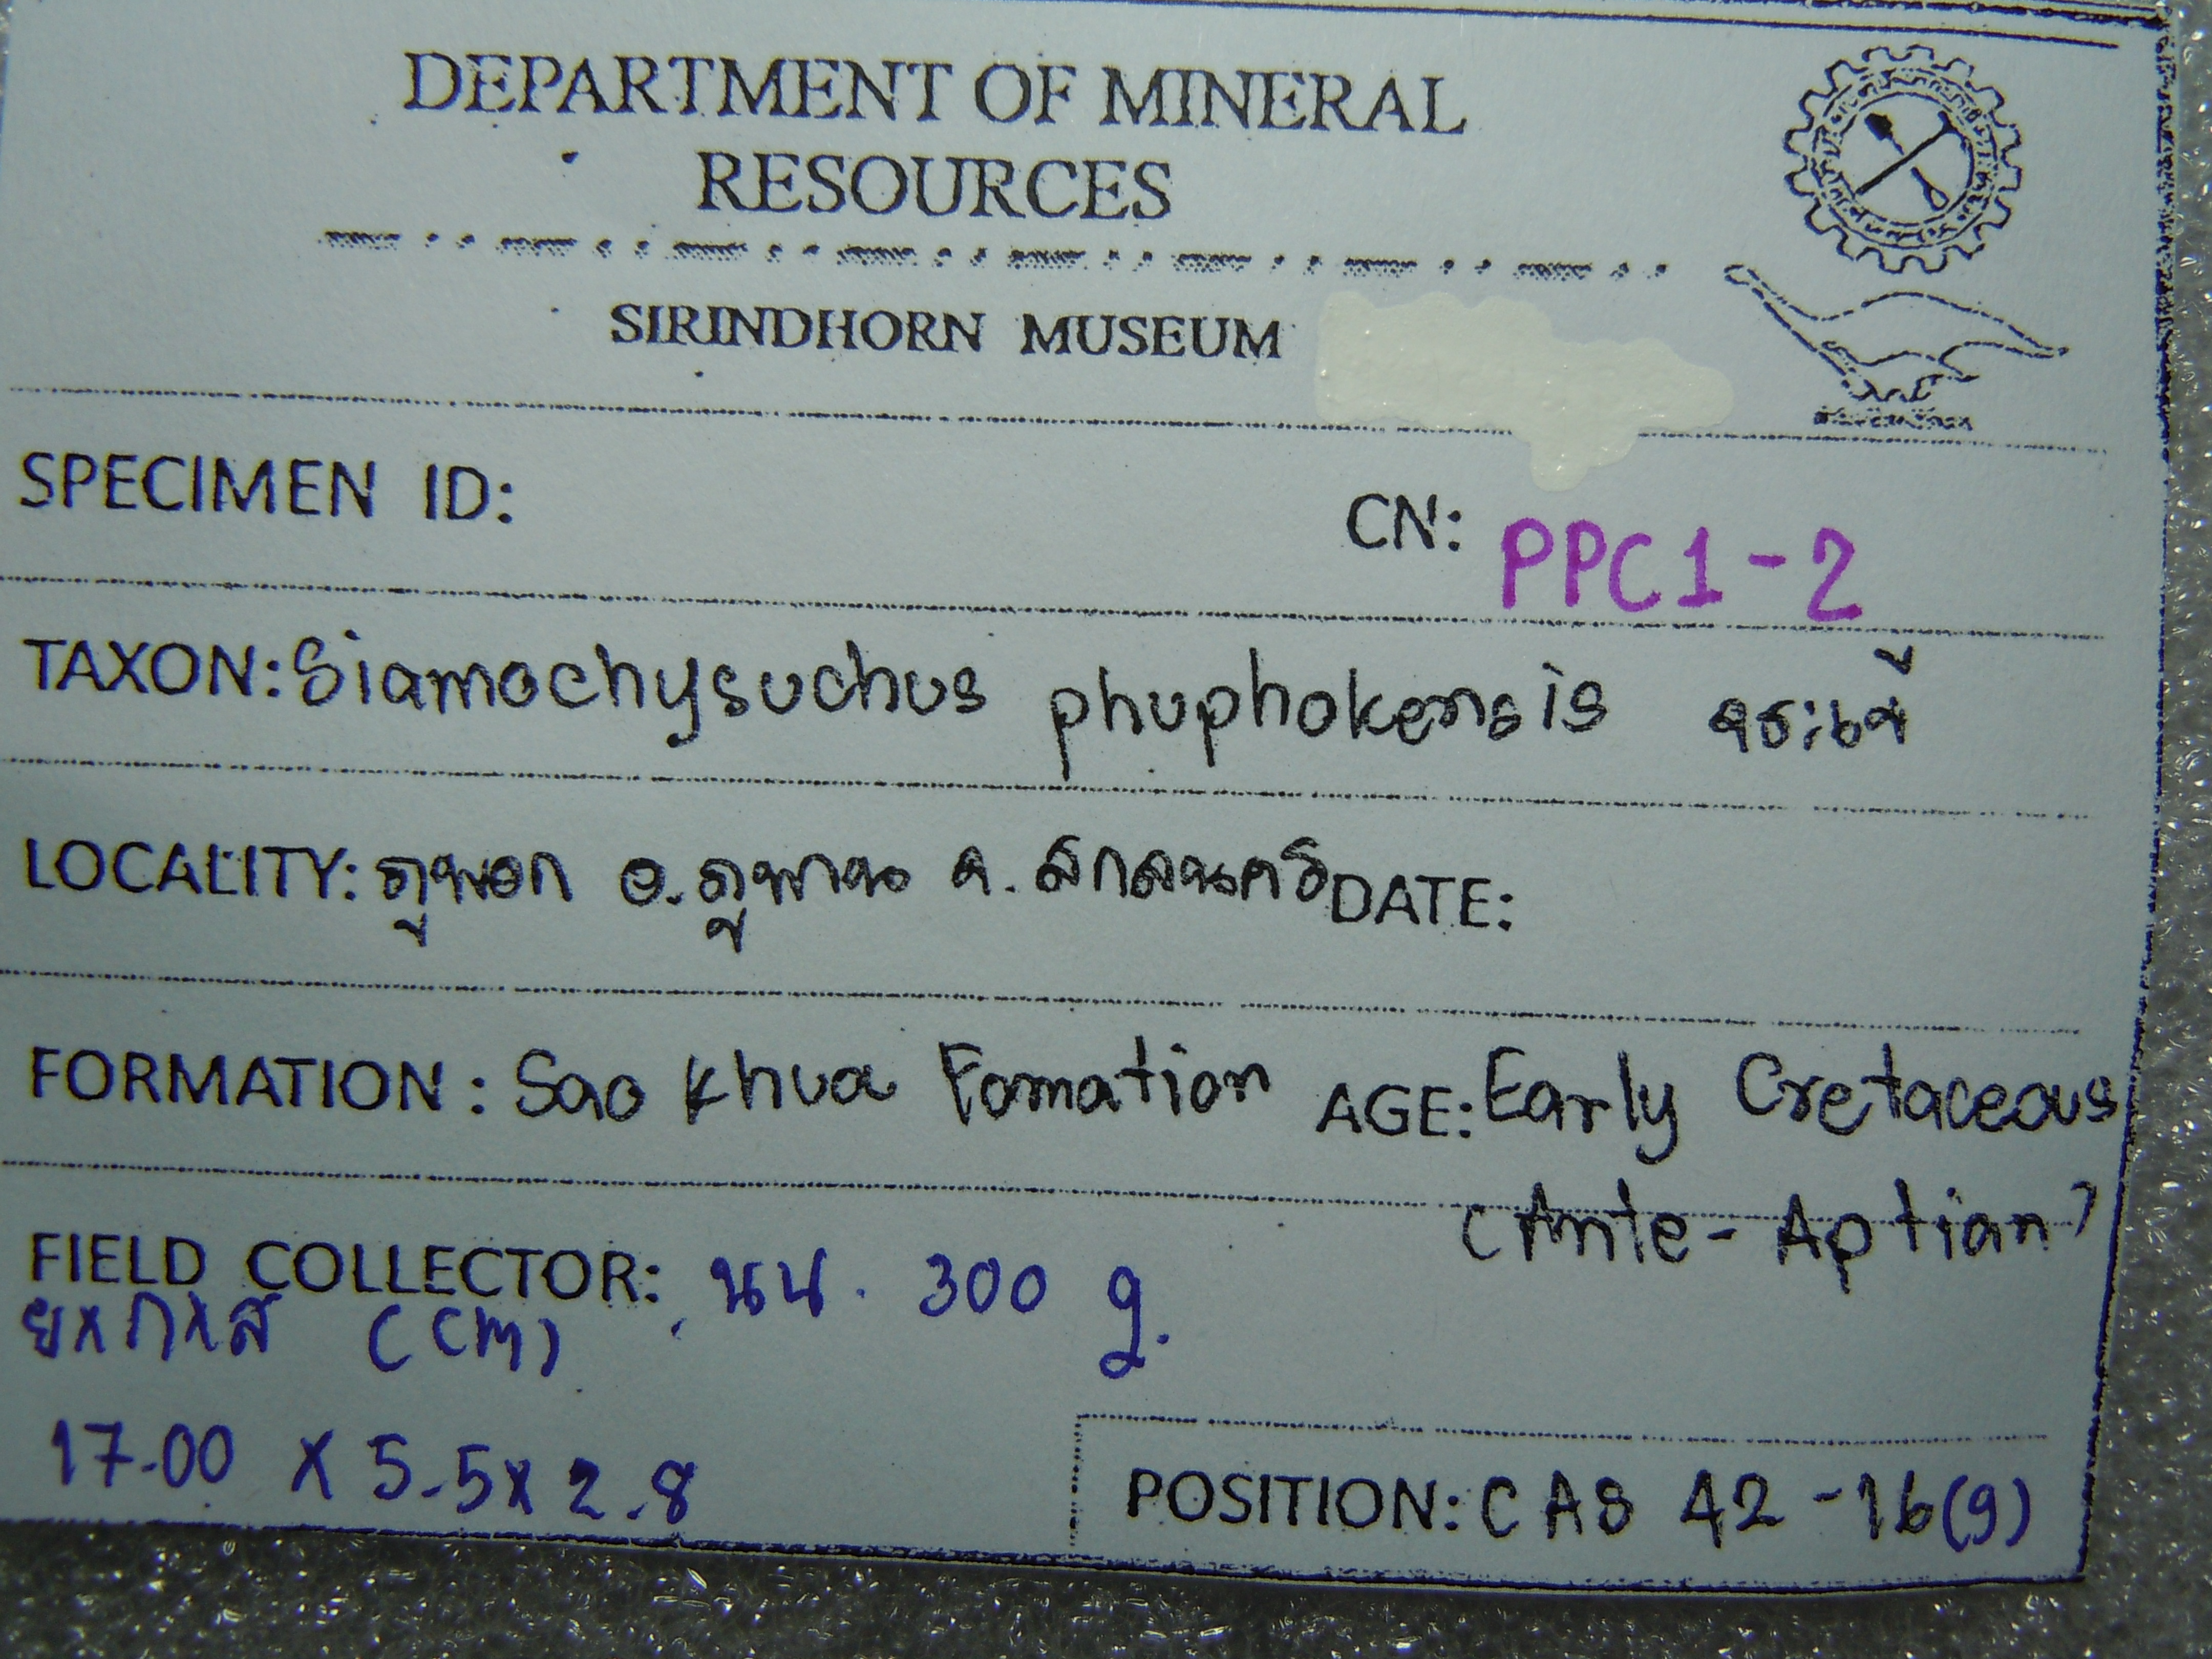 DEPARTMENT OF MINERAL
RESOURCES
SIRINDHORN MUSEUM
SPECIMEN ID: CN: PPC1-2
TAXON: Siamochysuchus phuphokensis จระเข้
LOCALITY: ภูพอก อ.ภูพาน จ.สกลนคร DATE:
FORMATION: Sao Khua Fomation AGE: Early Cretaceous
(Ante-Aptian)
FIELD COLLECTOR: นน. 300 g.
ยxกxส (cm)
17.00 x 5.5x 2.8
POSITION: CAS 42-16(9)